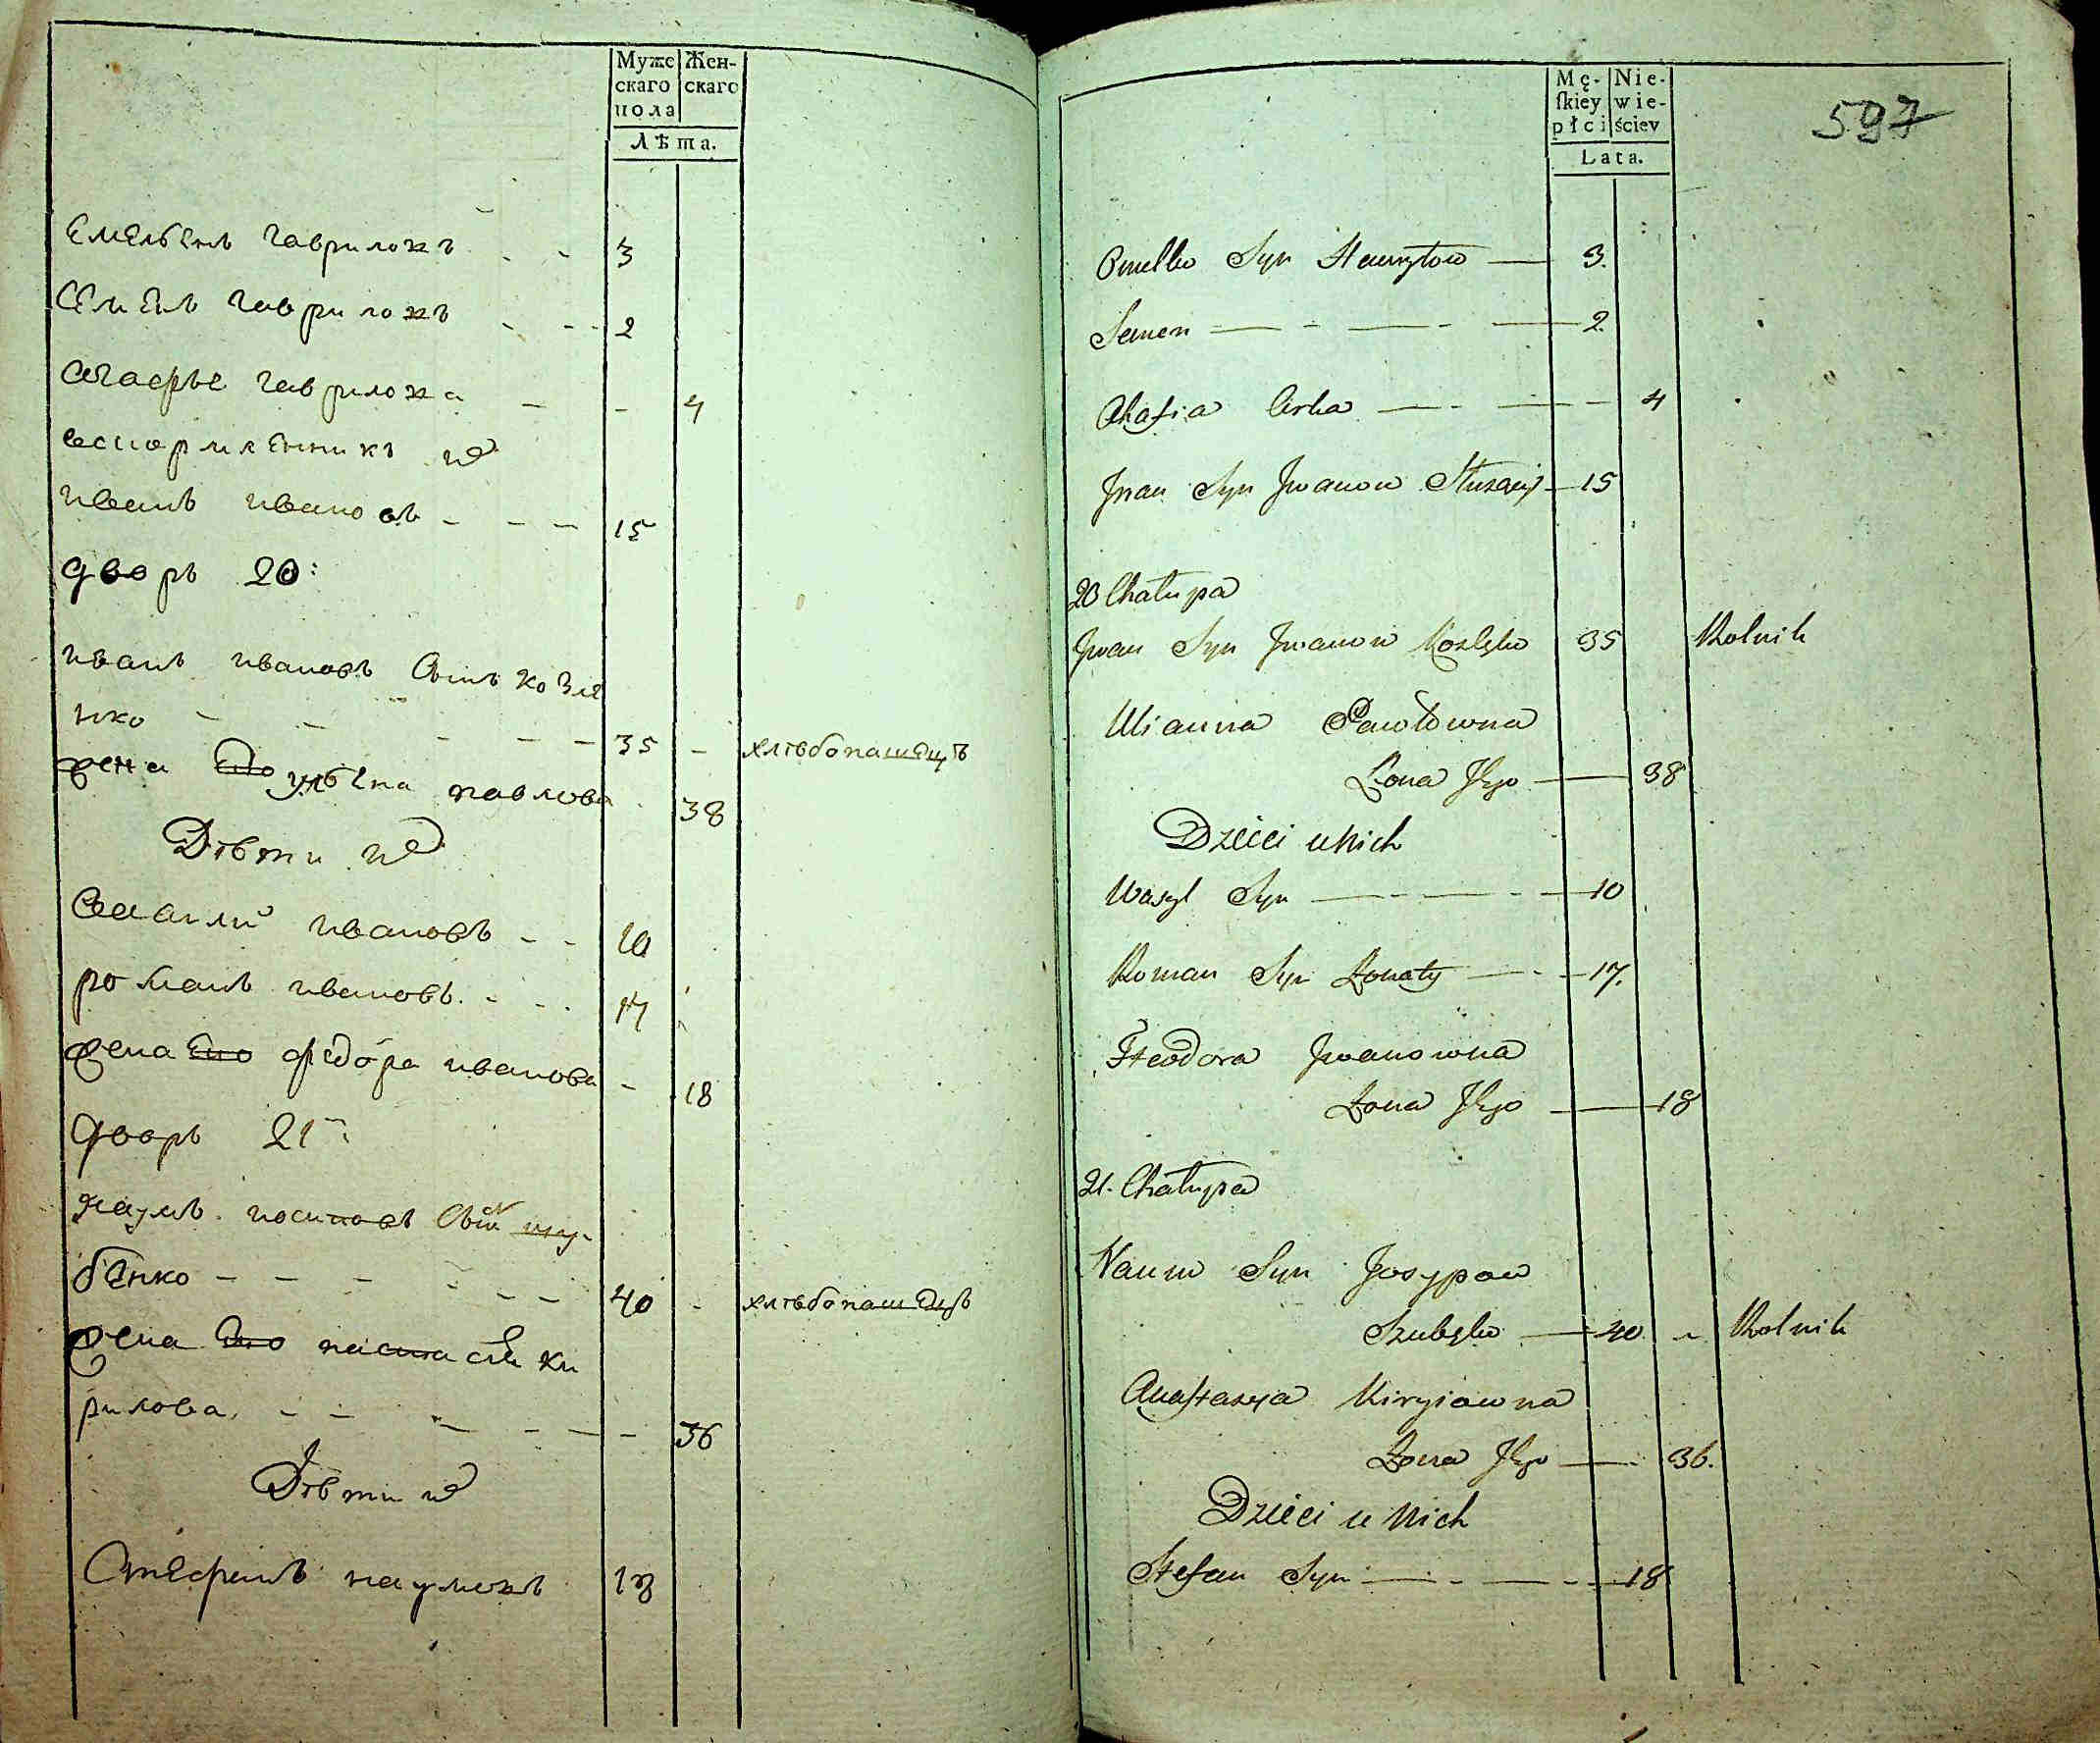 Муже
скаго
пола
Жен-
скаго
Лѣта.
Емельенъ гавриловъ - - 3
Семенъ гавриловъ - - 2
агафье гаврилова - - 4
иванъ ивановъ - - - 15
дворъ 20:
иванъ ивановъ сынъ козле
нко - - - - - 35 - хлѣбопашецъ
жена Его ульена павлова 38
Дѣти ихъ
василий ивановъ - - 10
романъ ивановъ - - - 17
жена Его федора иванова - 18
дворъ 21й
наумъ иосиповъ сынъ шу-
бенко - - - - - - 40 - хлѣбопашецъ
жена Его настасия ки
рилова - - - - - - 36
Дѣти ихъ
Стефанъ наумовъ 18
Mę-
ſkiey
płci
Nie-
wie-
ściey
Lata.
597
Omelko Syn Hawryłow — 3.
Semen — - — - — 2
Ahafia Corka — - — - 4
Jwan Syn Jwanow Służący - 15
20 Chałupa
Jwan Syn Jwanow Kozlęko 35 Rolnik
Ulianna Pawłowna
Żona Jego — 38
Dzieci u Nich
Wasyl Syn — - — - - 10
Roman Syn Żonaty — - - 17.
Fteodora Jwanowna
Żona Jego — 18
21. Chałupa
Naum Syn Josypow
Szubęko — 40 - Rolnik
Anastazya Kiryłowna
Żona Jego — 36.
Dzieci u Nich
Stefan Syn — - — - - 18